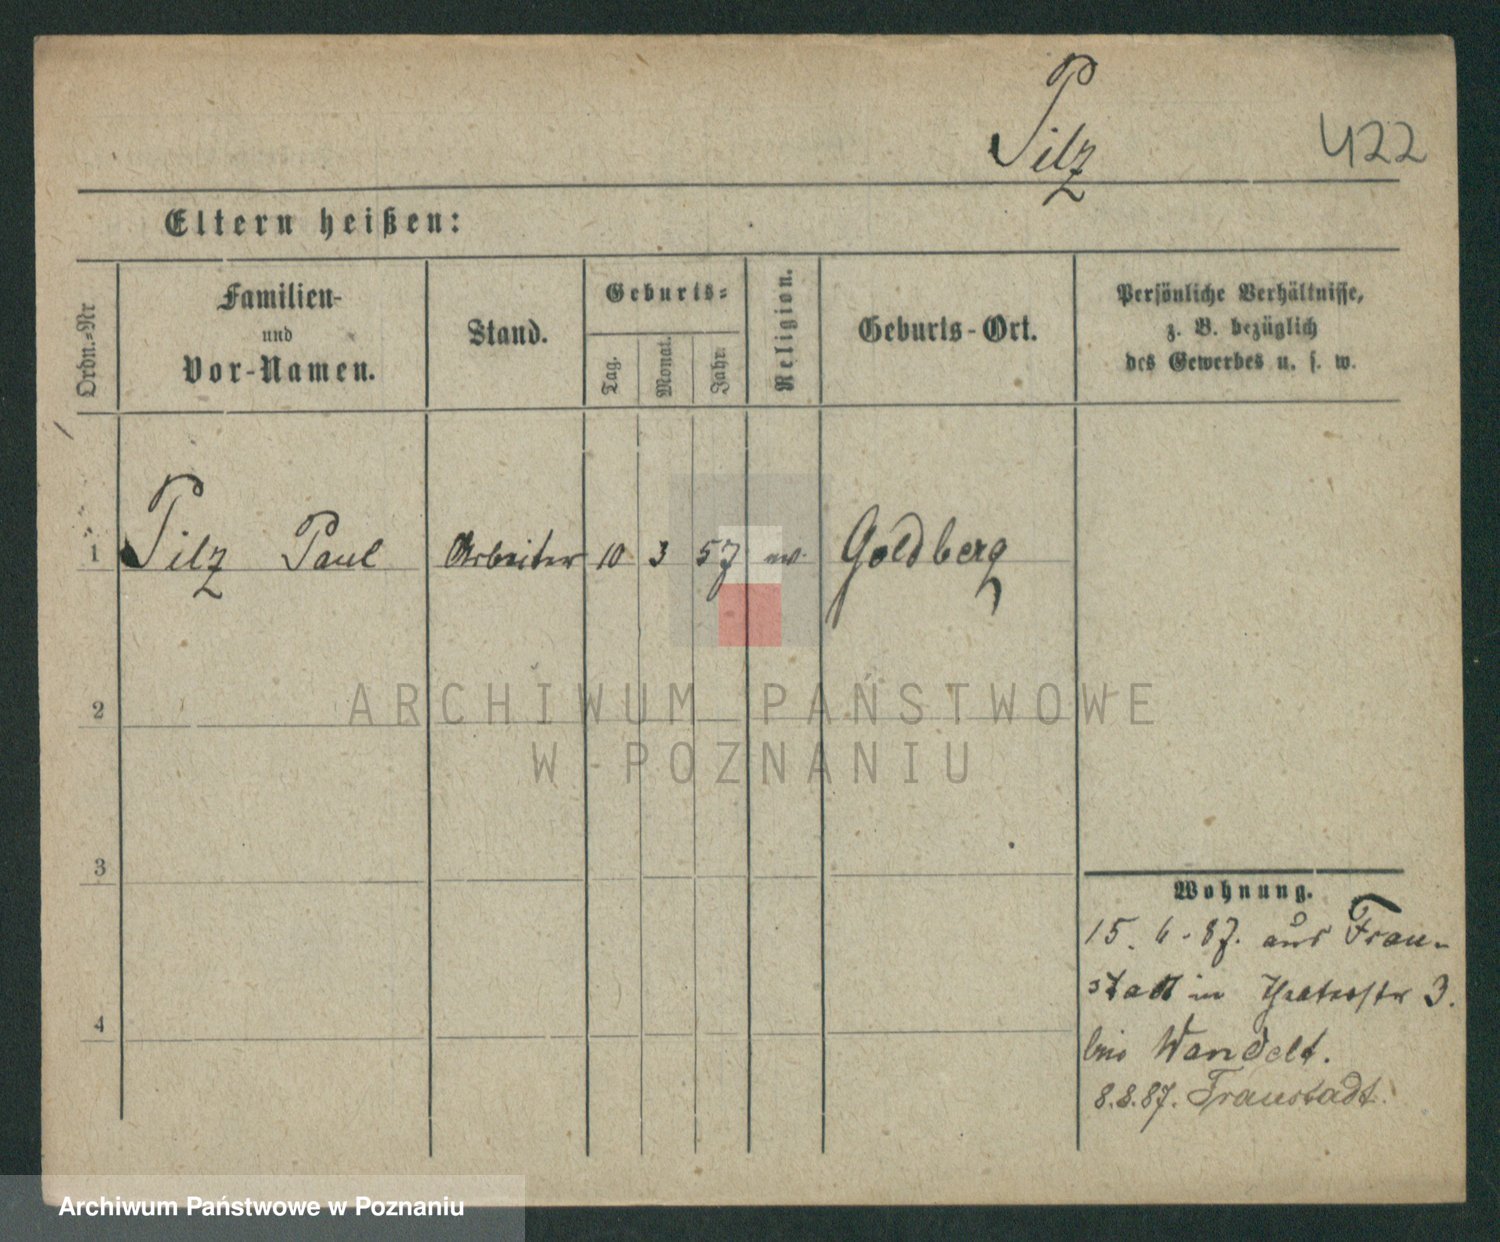 Pilz
422
Eltern heißen:
Ordn.-Nr
Familien-
und
Vor-Namen.
Stand.
Geburts-
Tag.
Monat.
Jahr.
Religion.
Geburts-Ort.
Persönliche Verhältnisse,
z. B. bezüglich
des Gewerbes u. s. w.
1 Pilz Paul Arbeiter 10 3 57 ev. Goldberg
2
3
4
Wohnung.
15. 6. 87. aus Frau-
stadt in Theaterstr 3.
bei Wandelt.
8.8.87. Fraustadt.
ARCHIWUM PAŃSTWOWE
W POZNANIU
Archiwum Państwowe w Poznaniu